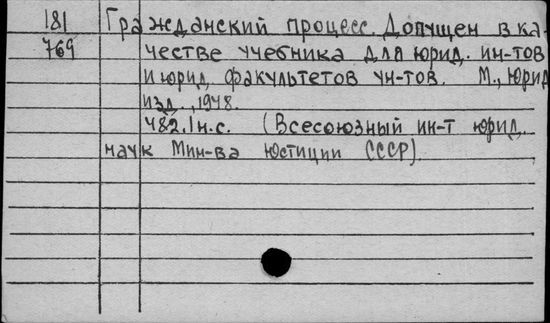 181 Гражданский процесс. Допущен в ка-
769 честве учебника для юрид. ин-тов
и юрид. факультетов ун-тов. М., Юрид.
изд., 1948.
482. 1 н.с. (Всесоюзный ин-т юрид.
наук Мин-ва юстиции СССР).